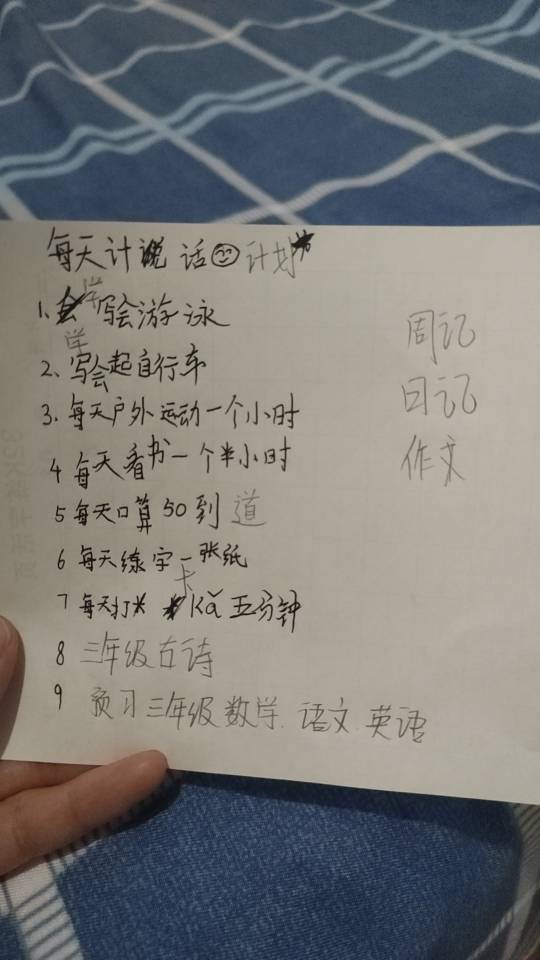 每天计说话计划
1、学写会游泳
2、学写会起自行车
3、每天户外运动一个小时
4 每天看书一个半小时
5 每天口算50到道
6 每天练字一张纸
7 每天打卡kǎ五分钟
8 三年级古诗
9 预习三年级数学 语文 英语
周记
日记
作文